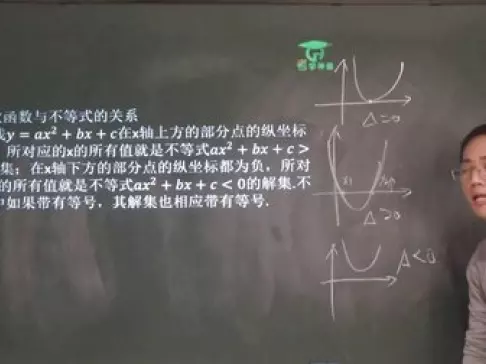 函数与不等式的关系
y=ax²+bx+c在x轴上方的部分点的纵坐标
所对应的x的所有值就是不等式ax²+bx+c>
集；在x轴下方的部分点的纵坐标都为负，所对
的所有值就是不等式ax²+bx+c<0的解集.不
如果带有等号，其解集也相应带有等号.
Δ=0
Δ>0
Δ<0